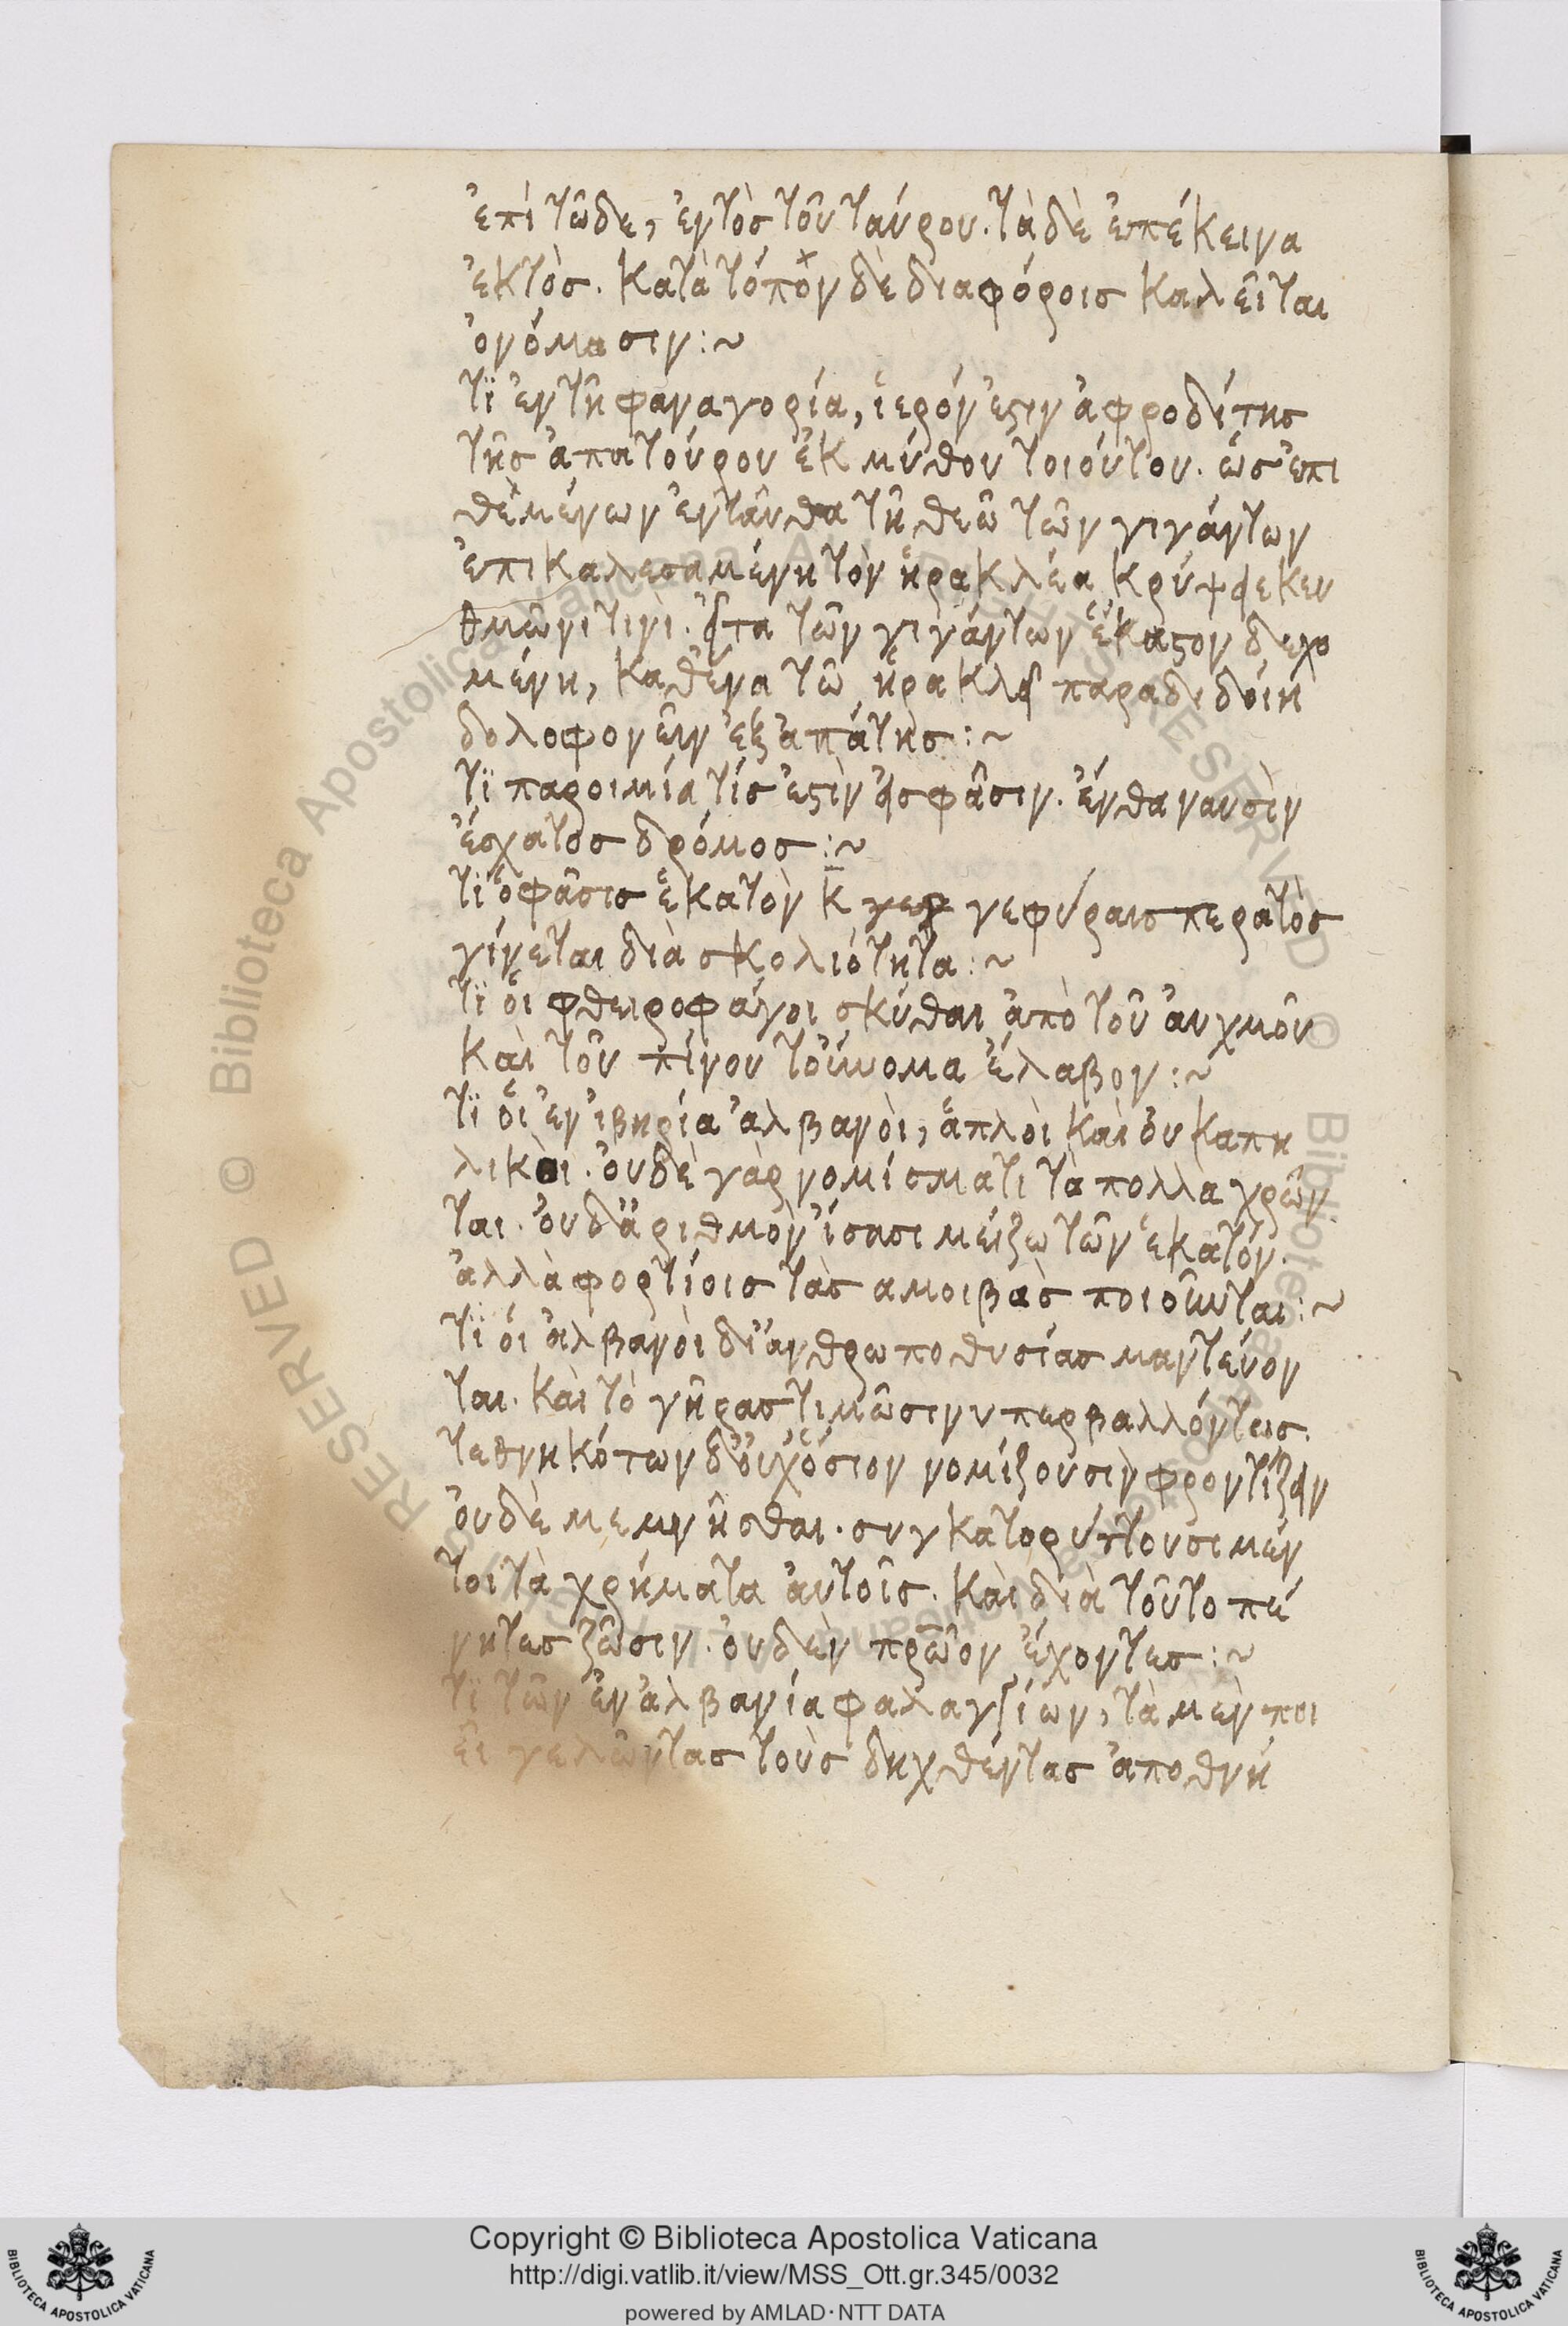 ἐπὶ τῶδε, ἐντὸς τοῦ ταύρου. τὰ δὲ ἐπέκεινα
ἐκτὸς. κατὰ τόπον δὲ διαφόροις καλεῖται
ὀνόμασιν :~
τϊ ἐν τῆ φαναγορία, ἱερόν ἐστιν ἀφροδίτης
τῆς ἀπατούρου ἐκ μύθου τοιούτου. ὡς ἐπι
θεμένων ἐνταῦθα τῆ θεῶ τῶν γιγάντων
ἐπικαλεσαμένη τὸν ἡρακλέα κρύψειε κευ
θμῶνι τινὶ. εἶτα τῶν γιγάντων ἕκαστον δεχο
μένη, καθ' ἕνα τῶ ἡρακλεῖ παραδιδοίη
δολοφονεῖν ἐξ ἀπάτης :~
τϊ παροιμία τίς ἐστὶν εἰς φᾶσιν. ἔνθα ναυσὶν
ἔσχατος δρόμος :~
τϊ ὁ φᾶσις ἑκατὸν κ γεφύραις περατὸς
γίνεται διὰ σκολιότητα :~
τϊ οἱ φθειροφάγοι σκύθαι ἀπὸ τοῦ αὐχμοῦ
καὶ τοῦ πίνου τοὔνομα ἔλαβον :~
τϊ οἱ ἐν ἰβηρία ἀλβανοὶ, ἁπλοὶ καὶ οὐ καπη
λικοι. οὐδὲ γὰρ νομίσματι τὰ πολλὰ χρῶν
ται. οὐδ' ἀριθμὸν ἴσασι μείζω τῶν ἑκατὸν.
ἀλλὰ φορτίοις τὰς αμοιβὰς ποιοῦνται :~
τϊ οἱ ἀλβανοὶ δι' ἀνθρωποθυσίας μαντεύον
ται. καὶ τὸ γῆρας τιμῶσιν υπερβαλλόντως.
τεθνηκότων δ' οὐχ ὅσιον νομίζουσιν φροντίζειν
οὐδὲ μεμνῆσθαι. συγκατορύττουσι μέν
τοι τὰ χρήματα αὐτοῖς. καὶ διὰ τοῦτο πέ
νητες ζῶσιν. οὐδὲν πρῶον ἔχοντες :~
τϊ τῶν ἐν ἀλβανία φαλαγγίων, τὰ μὲν ποι
εῖ γελῶντας τοὺς δηχθέντας ἀποθνή
Copyright © Biblioteca Apostolica Vaticana
http://digi.vatlib.it/view/MSS_Ott.gr.345/0032
powered by AMLAD · NTT DATA